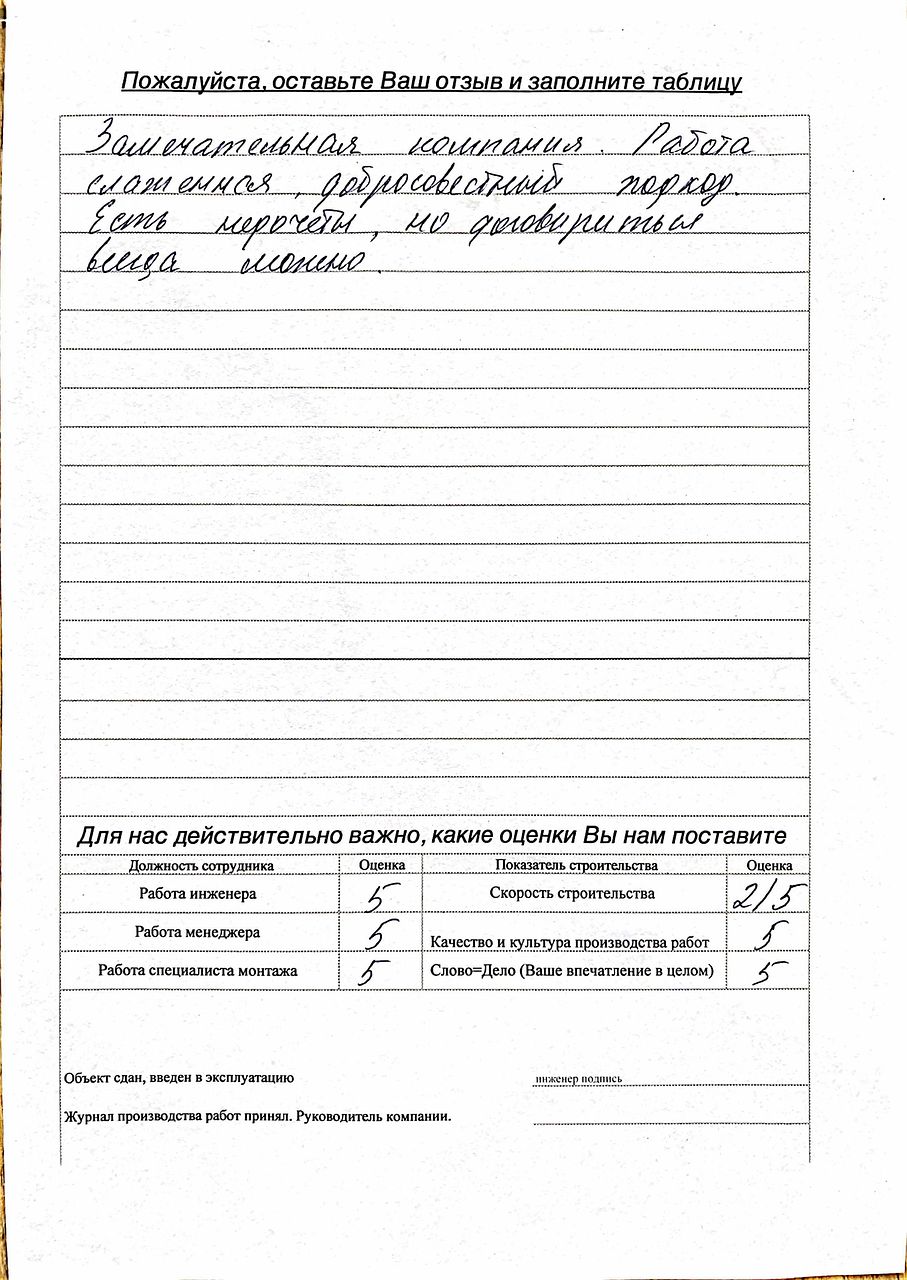 Пожалуйста, оставьте Ваш отзыв и заполните таблицу
Замечательная компания. Работа
слаженная, добросовестный подход.
Есть недочёты, но договориться
всегда можно.
Для нас действительно важно, какие оценки Вы нам поставите
Должность сотрудника Оценка Показатель строительства Оценка
Работа инженера 5 Скорость строительства 2/5
Работа менеджера 5 Качество и культура производства работ 5
Работа специалиста монтажа 5 Слово=Дело (Ваше впечатление в целом) 5
Объект сдан, введен в эксплуатацию инженер подпись
Журнал производства работ принял. Руководитель компании.